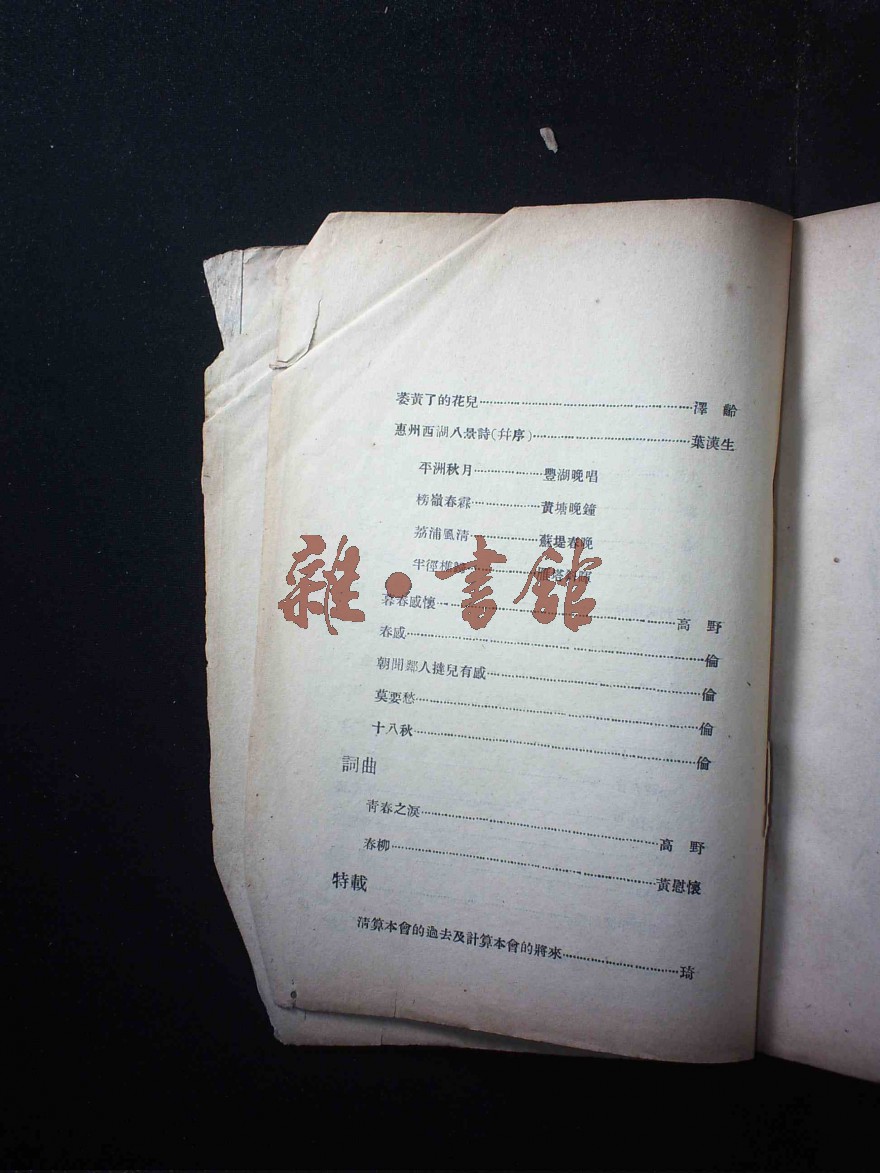 萎黃了的花兒……澤 齡
惠州西湖八景詩(幷序)……葉漢生
平洲秋月……豐湖晚唱
榜嶺春霖……黃塘晚鐘
荔浦風清……蘇堤春晚
半徑樵
暮春感懷……高 野
春感……倫
朝聞鄰人撻兒有感……倫
莫要愁……倫
十八秋……倫
詞曲
靑春之淚……高 野
春柳……黃慰懷
特載
清算本會的過去及計算本會的將來……琦
雜·書館